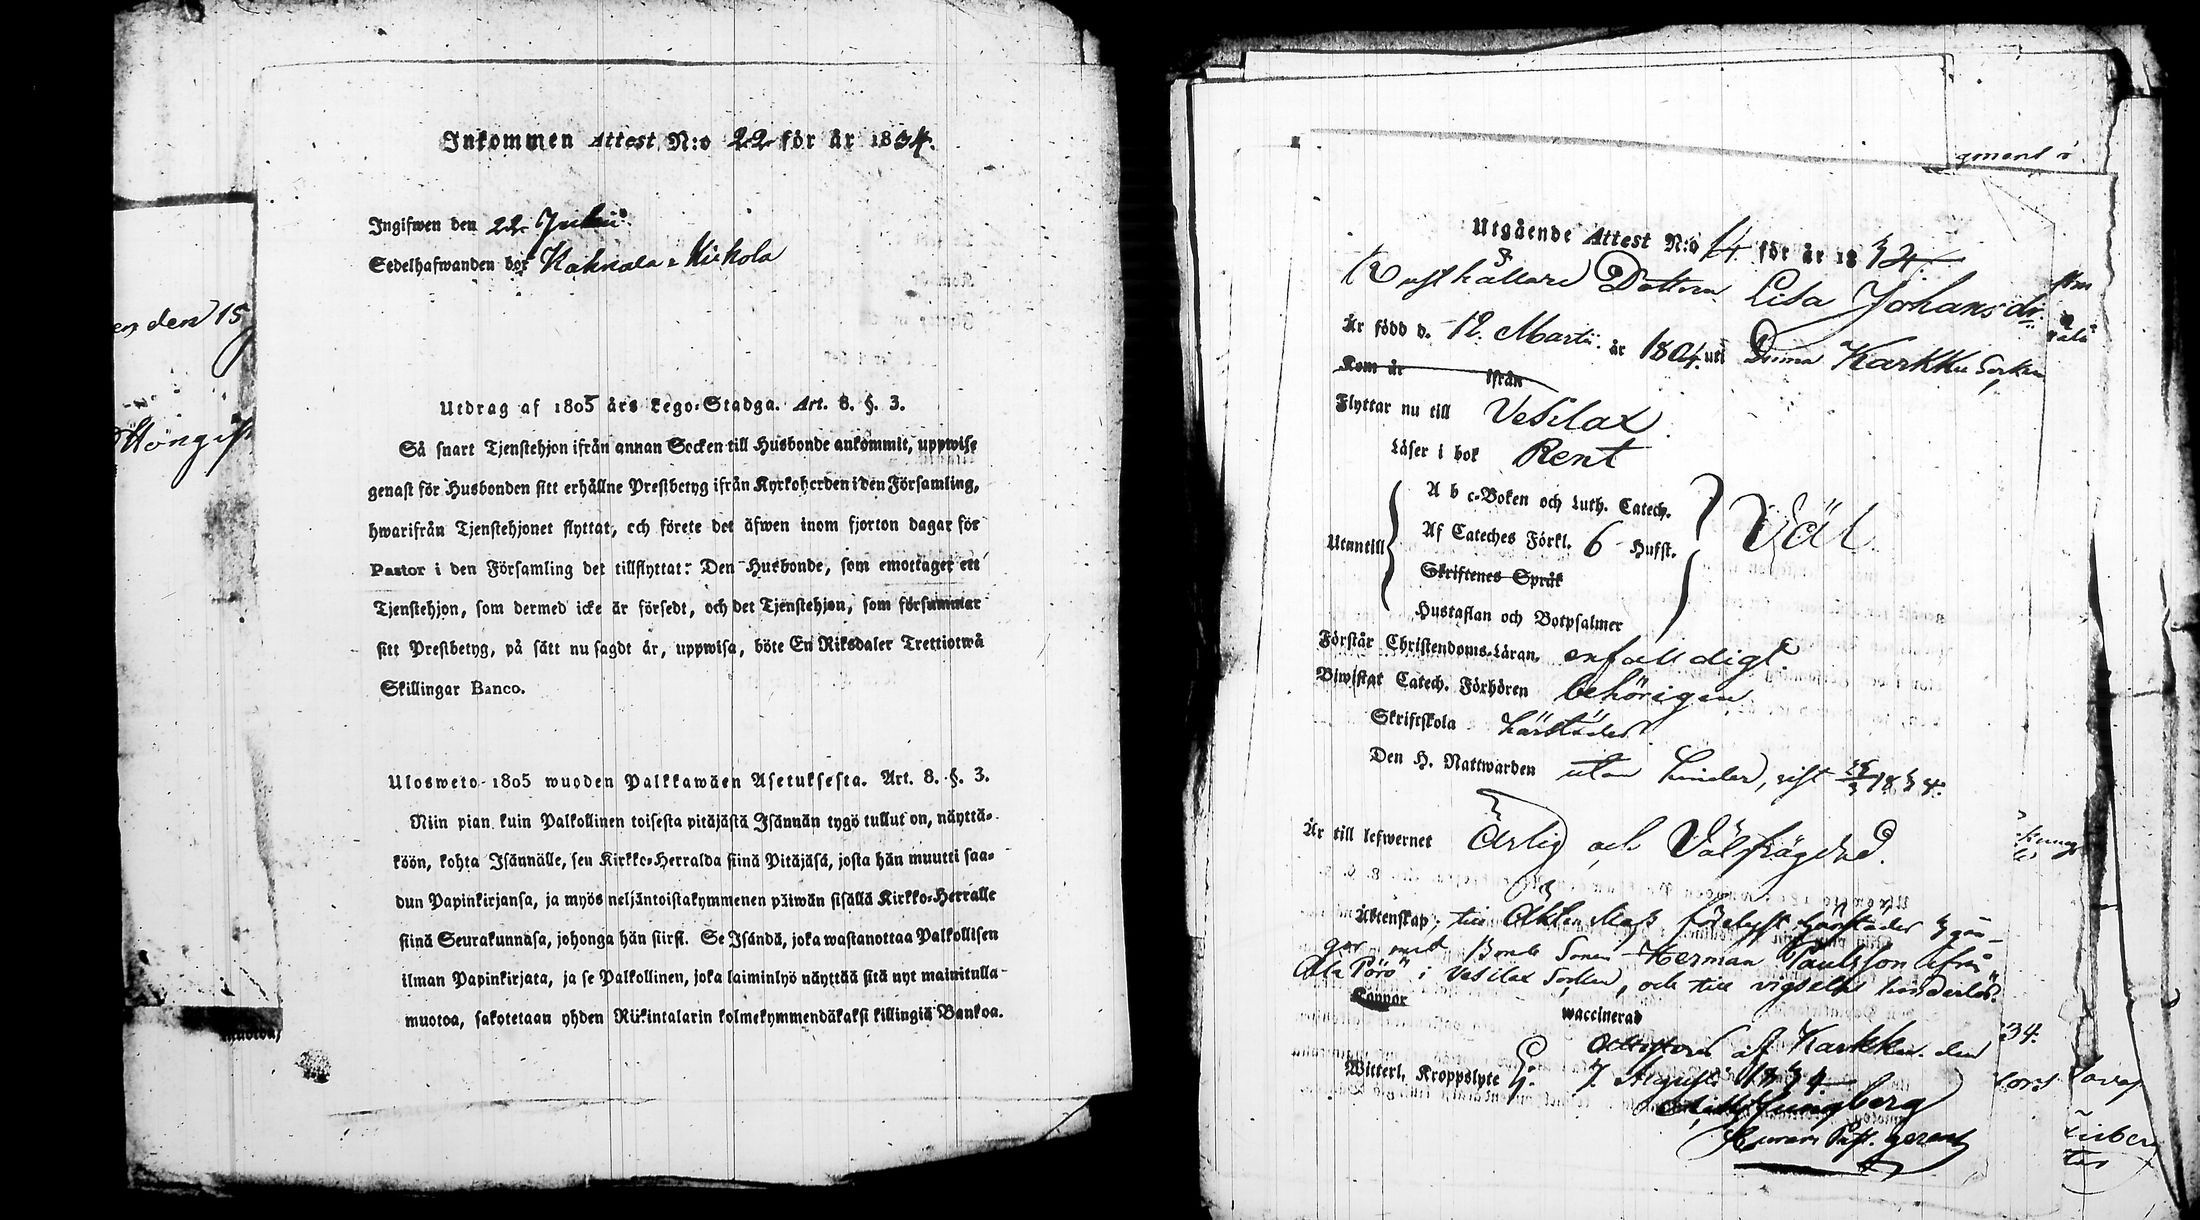 Inkommen Attest N:o 22 för år 1834.
Ingifwen den 22 Julii
Sedelhafwanden bor Kahnala Mickola
en den 15
Utdrag af 1805 års Lego-Stadga. Art. 8. §. 3.
Så snart Tjenstehjon ifrån annan Socken till Husbonde ankommit, uppwise
genast för Husbonden sitt erhållne Prestbetyg ifrån Kyrkoherden i den Församling,
hwarifrån Tjenstehjonet flyttat, och förete det äfwen inom fjorton dagar för
Pastor i den Församling det tillflyttat: Den Husbonde, som emottager ett
Tjenstehjon, som dermed icke är försedt, och det Tjenstehjon, som försummar
sitt Prestbetyg, på sätt nu sagdt är, uppwisa, böte En Riksdaler Trettiotwå
Skillingar Banco.
Ulosweto 1805 wuoden Palkkawäen Asetuksesta. Art. 8. §. 3.
Niin pian kuin Palkollinen toisesta pitäjästä Isännän tygö tullut on, näyttä-
köön, kohta Isännälle, sen Kirkko-Herralda siinä Pitäjäsä, josta hän muutti saa-
dun Papinkirjansa, ja myös neljäntoistakymmenen päiwän sisällä Kirkko-Herralle
siinä Seurakunnasa, johonga hän siirsi. Se Isändä, joka wastanottaa Palkollisen
ilman Papinkirjata, ja se Palkollinen, joka laiminlyö näyttää sitä nyt mainitulla
muotoa, sakotetaan yhden Riikintalarin kolmekymmendäkaksi killingiä Bankoa.
Utgående Attest N:o 14 för år 1834
Rusthållare Dottern Lisa Johansdr.
Är född d. 12. Martii år 1804 uti Karkku Socken
Kom år ifrån
Flyttar nu till Vesilax.
Läser i bok Rent
A b c-Boken och Luth. Catech.
Utantill Af Cateches Förkl. 6 Hufst. Väl
Skriftenes Språk
Hustaflan och Botpsalmer
Förstår Christendoms-Läran. enfalldigt.
Biwistat Catech. Förhören behörigen
Skriftskola härstädes
Den H. Nattwarden utan hinder, sist 1834.
Är till lefwernet Ärlig och Välfrägdad.
Äktenskap; till Äktenskap förelyst härstädes 3 gån-
gor med Bonde Sonen Herman Paulsson ifrån
Ala Pörö i Vesilax Socken, och till vigseln hinderlös.
Koppor waccinerad
Attesteras af Karkku den
Witterl. Kroppslyte Ej. 7. Augusti 1834
Ljungberg
34.